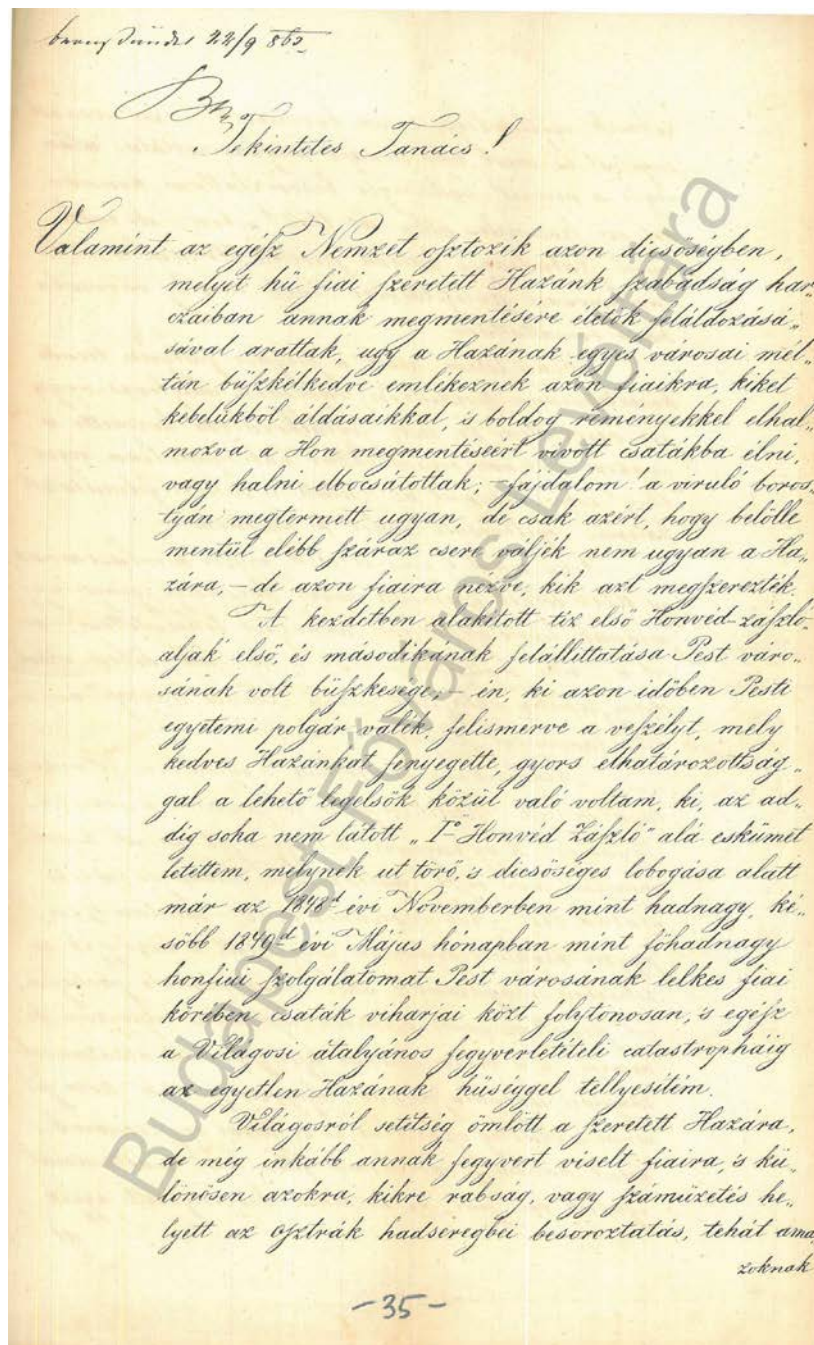 22/9 865
Tekintetes Tanács!
Valamint az egész Nemzet osztozik azon dicsőségben,
melyet hű fiai szeretett Hazánk szabadság har„
czaiban annak megmentésére életök feláldozásá„
sával arattak, ugy a Hazának egyes városai mél„
tán büszkélkedve emlékeznek azon fiaikra, kiket
kebelükből áldásaikkal, 's boldog reményekkel elhal„
mozva a Hon megmentéseért vívott csatákba élni,
vagy halni elbocsátottak; – fájdalom! a viruló boros„
tyán megtermett ugyan, de csak azért, hogy belőlle
mentül elébb száraz csere váljék nem ugyan a Ha„
zára, – de azon fiaira nézve, kik azt megszerezték.
A kezdetben alakított tíz első Honvéd-zászló„
aljak első, és másodikának felállittatása Pest váro„
sának volt büszkesége; – én, ki azon időben Pesti
egyetemi polgár valék, felismerve a veszélyt, mely
kedves Hazánkat fenyegette, gyors elhatározottság„
gal a lehető legelsők közül való voltam, ki, az ad„
dig soha nem látott „Iő Honvéd Zászló" alá eskümet
letettem, melynek ut törő, 's dicsőséges lobogása alatt
már az 1848d évi Novemberben mint hadnagy, ké„
sőbb 1849d évi Május hónapban mint főhadnagy
honfiui szolgálatomat Pest városának lelkes fiai
körében csaták viharjai közt folytonosan, 's egész
a Világosi átalyános fegyverletételi catastropháig
az egyetlen Hazának hűséggel tellyesítém.
Világosról setétség ömlött a szeretett Hazára,
de még inkább annak fegyvert viselt fiaira, 's kü„
lönösen azokra, kikre rabság, vagy számüzetés he„
lyett az osztrák hadseregbei besoroztatás, tehát ama„
zoknak
-35-
Budapest Főváros Levéltára